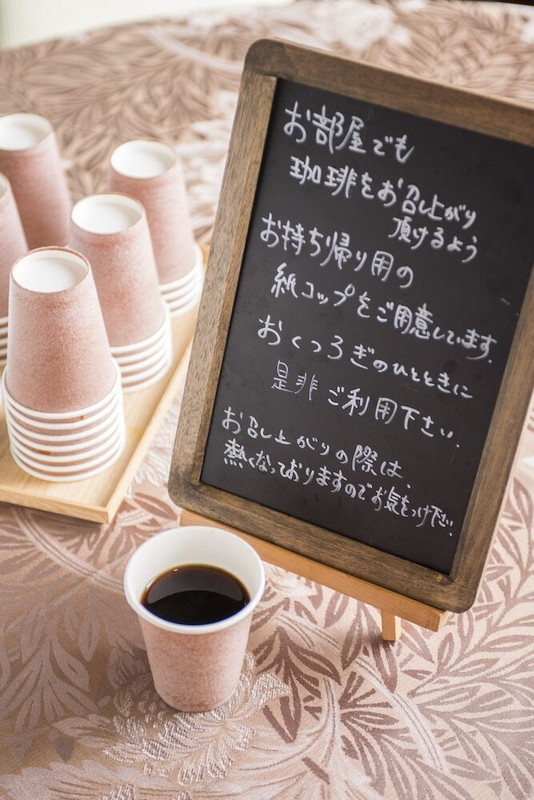 お部屋でも
珈琲をお召し上がり
頂けるよう
お持ち帰り用の
紙コップをご用意しています。
おくつろぎのひとときに
是非ご利用下さい。
お召し上がりの際は、
熱くなっておりますのでお気をつけ下さい。